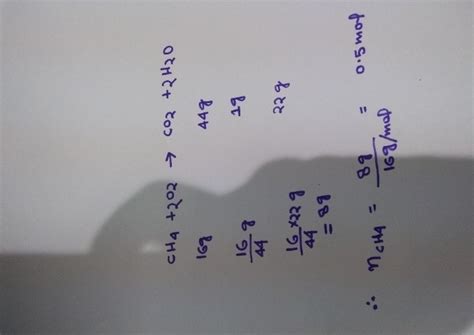 CH4 + 2O2 → CO2 + 2H2O
16g 44g
16/44 g 1g
16/44 × 22g 22g
= 8g
∴ nCH4 = 8g / 16g/mol = 0.5 mol